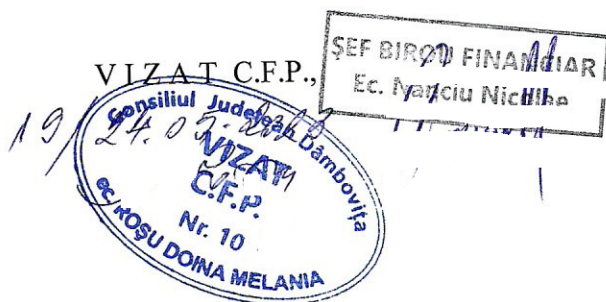 VIZAT C.F.P.,
ŞEF BIROU FINANCIAR
Ec. Nanciu Nicolae
Consiliul Judeţean Dâmboviţa
VIZAT
C.F.P.
Nr. 10
ec. ROŞU DOINA MELANIA